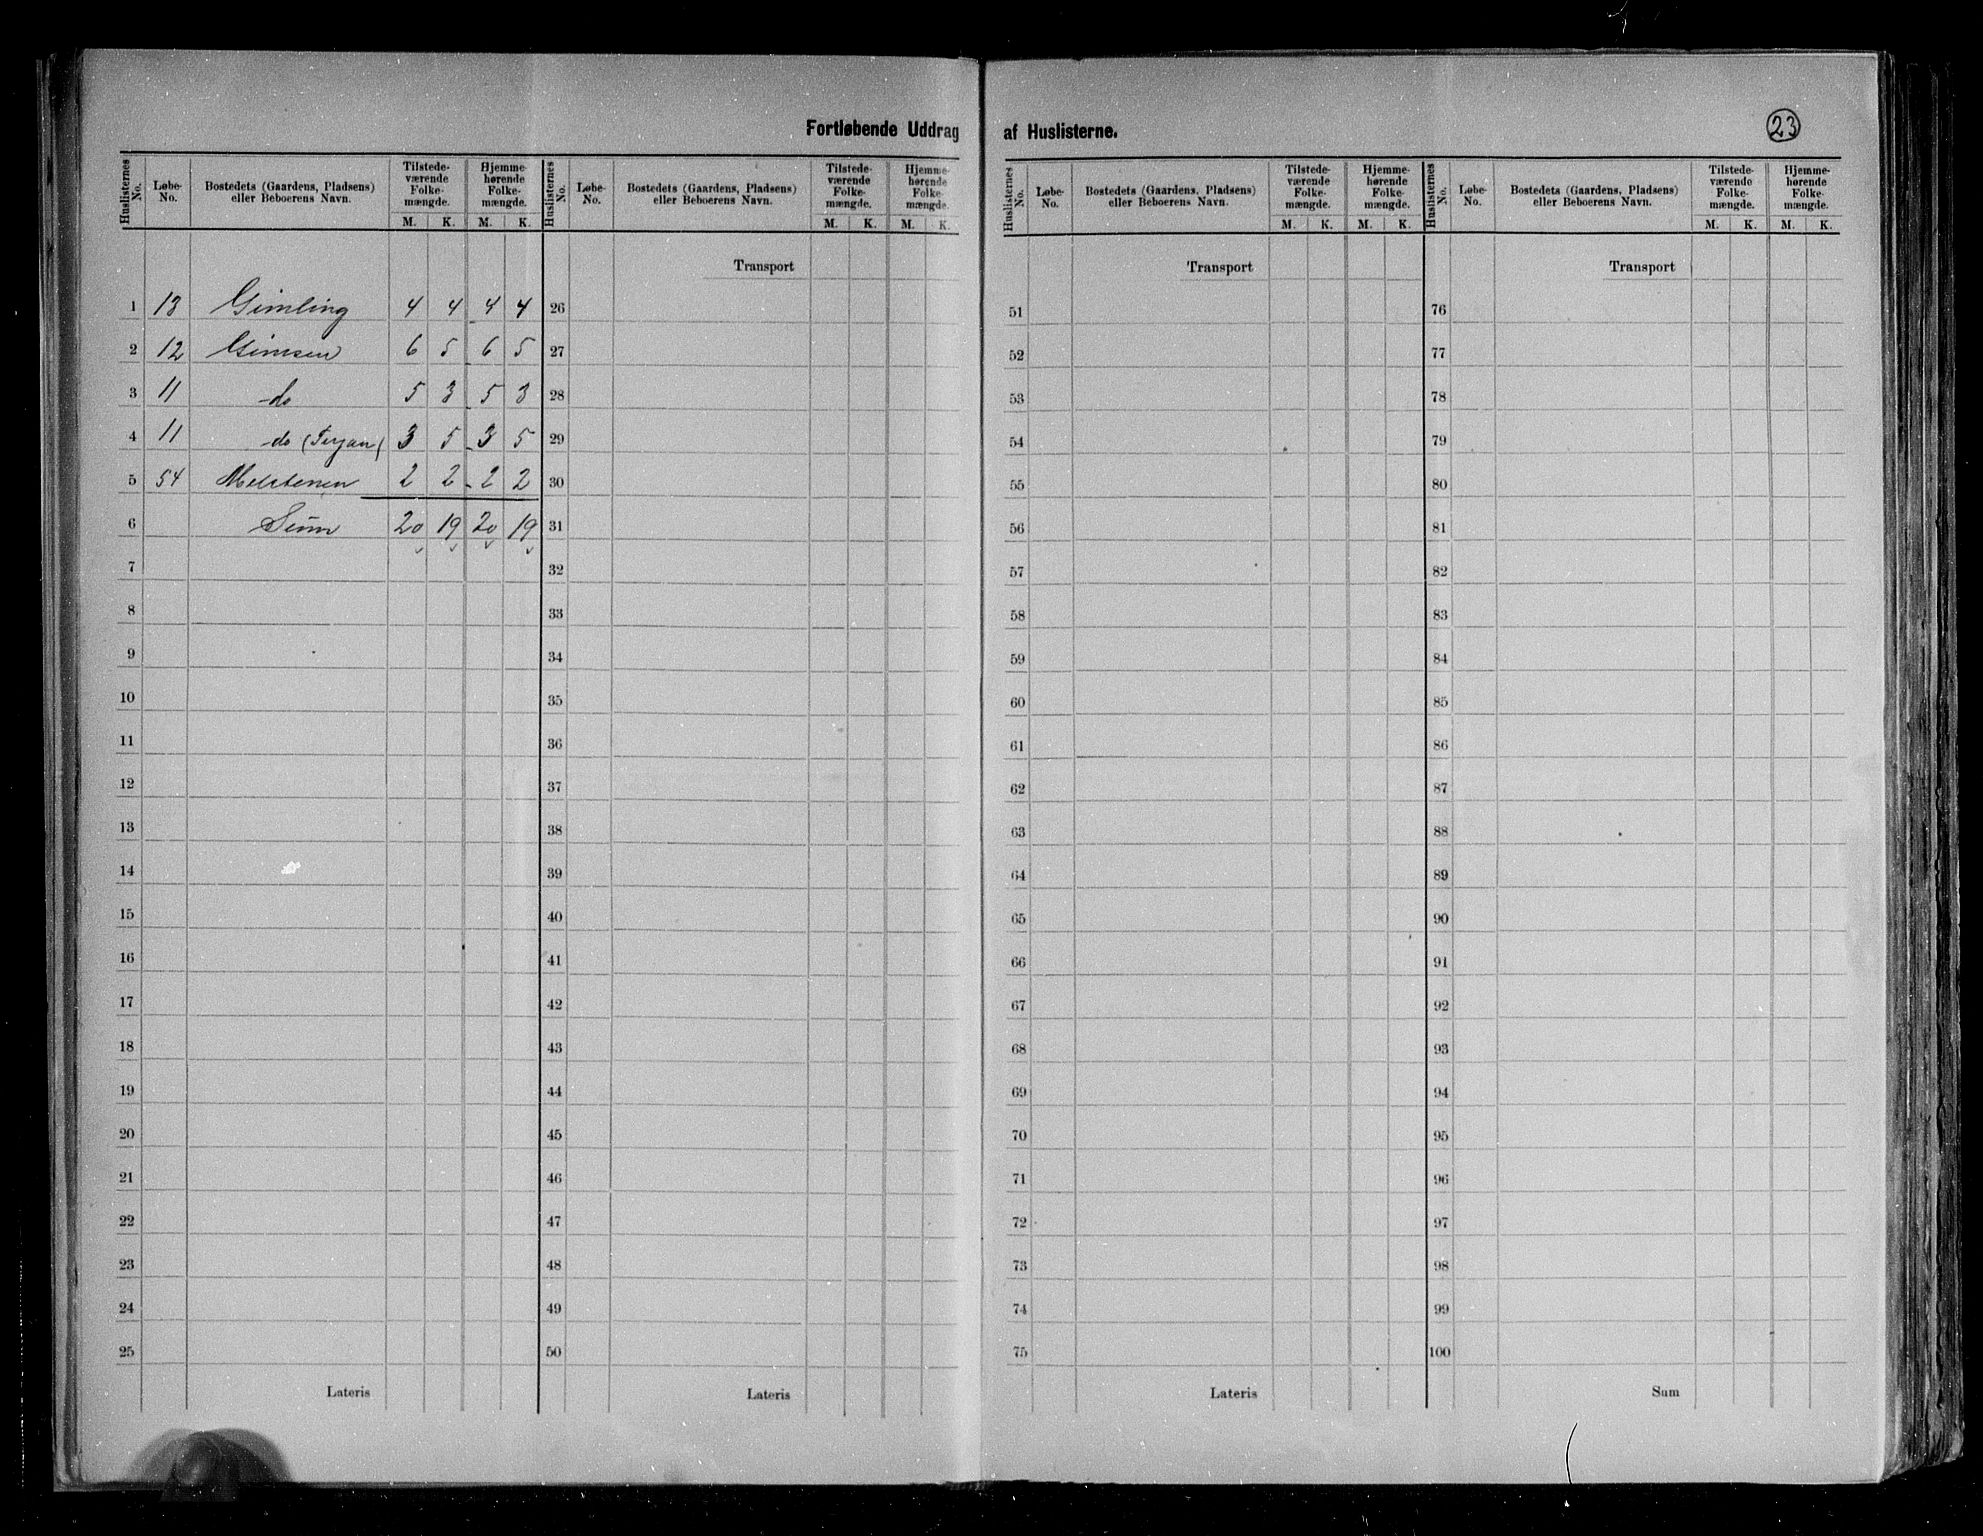 Fortløbende Uddrag af Huslisterne.
23
Huslisternes No. Løbe-No. Bostedets (Gaardens, Pladsens) eller Beboerens Navn. Tilstede-værende Folke-mængde. M. K. Hjemme-hørende Folke-mængde. M. K.
1 13 Gimling 4 4 4 4
2 12 Gimsen 6 5 6 5
3 11 do 5 3 5 3
4 11 do 3 5 3 5
5 54 2 2 2 2
6 Sum 20 19 20 19
7
8
9
10
11
12
13
14
15
16
17
18
19
20
21
22
23
24
25
Lateris
Huslisternes No. Løbe-No. Bostedets (Gaardens, Pladsens) eller Beboerens Navn. Tilstede-værende Folke-mængde. M. K. Hjemme-hørende Folke-mængde. M. K.
Transport
26
27
28
29
30
31
32
33
34
35
36
37
38
39
40
41
42
43
44
45
46
47
48
49
50
Lateris
Huslisternes No. Løbe-No. Bostedets (Gaardens, Pladsens) eller Beboerens Navn. Tilstede-værende Folke-mængde. M. K. Hjemme-hørende Folke-mængde. M. K.
Transport
51
52
53
54
55
56
57
58
59
60
61
62
63
64
65
66
67
68
69
70
71
72
73
74
75
Lateris
Huslisternes No. Løbe-No. Bostedets (Gaardens, Pladsens) eller Beboerens Navn. Tilstede-værende Folke-mængde. M. K. Hjemme-hørende Folke-mængde. M. K.
Transport
76
77
78
79
80
81
82
83
84
85
86
87
88
89
90
91
92
93
94
95
96
97
98
99
100
Sum